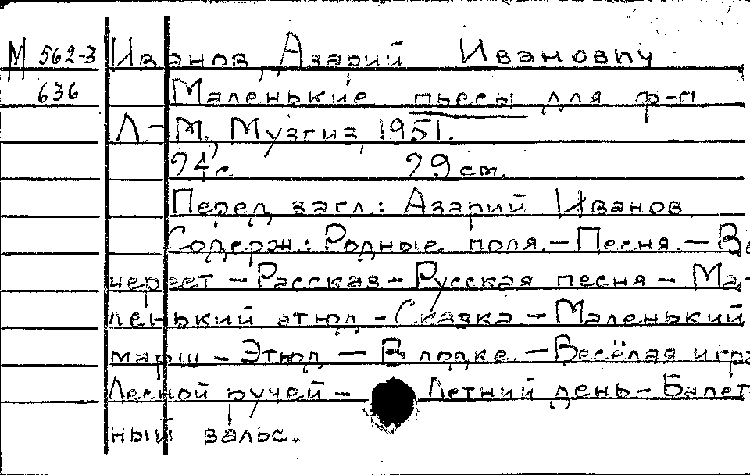 М 562-3 Иванов, Азарий Иванович
636 Маленькие пьесы для ф-п.
Л.-М., Музгиз, 1951.
24с. 29 см.
Перед загл.: Азарий Иванов
Содерж.: Родные поля.-Песня.-Ве
череет-Рассказ-Русская песня-Ма-
ленький этюд-Сказка-Маленький
марш-Этюд-В лодке.-Весёлая игра
Лесной ручей-Летний день-Балет
ный вальс.